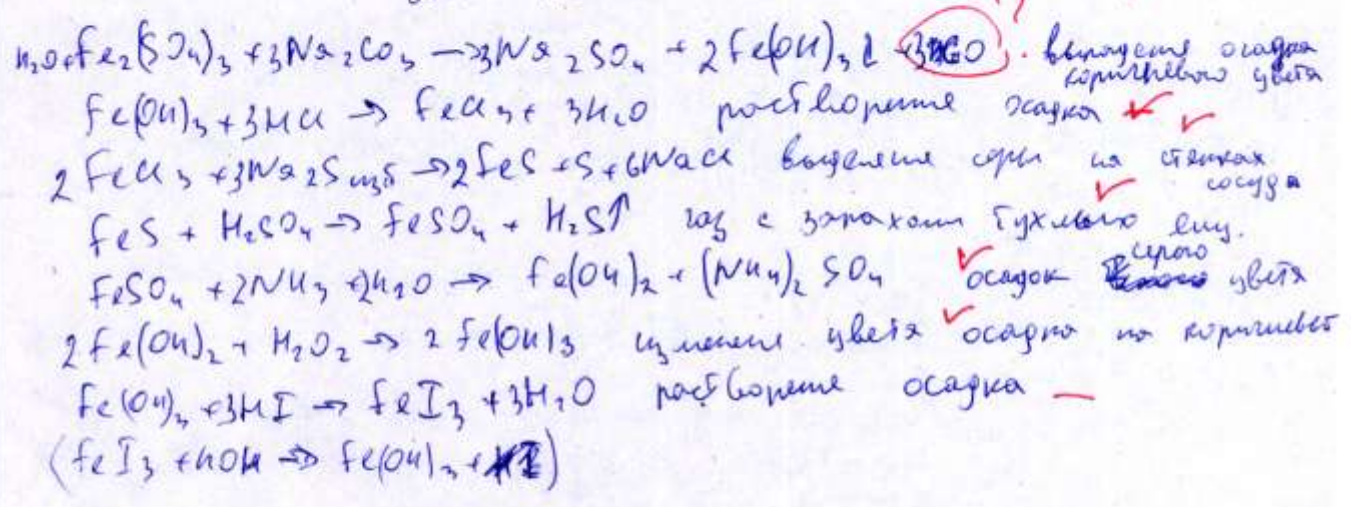 H₂O+Fe₂(SO₄)₃ + 3Na₂CO₃ → 3Na₂SO₄ + 2Fe(OH)₃↓ + 3CO. выпадение осадка
коричневого цвета
Fe(OH)₃ + 3HCl → FeCl₃ + 3H₂O растворение осадка
2FeCl₃ + 3Na₂S → 2FeS + S + 6NaCl выделение серы на стенках
сосуда
FeS + H₂SO₄ → FeSO₄ + H₂S↑ газ с запахом тухлого яиц.
FeSO₄ + 2NH₃ + 2H₂O → Fe(OH)₂ + (NH₄)₂SO₄ осадок серого цвета
2Fe(OH)₂ + H₂O₂ → 2Fe(OH)₃ изменение цвета осадка на коричневый
Fe(OH)₃ + 3HI → FeI₃ + 3H₂O растворение осадка
(FeI₃ + KOH → Fe(OH)₃ +